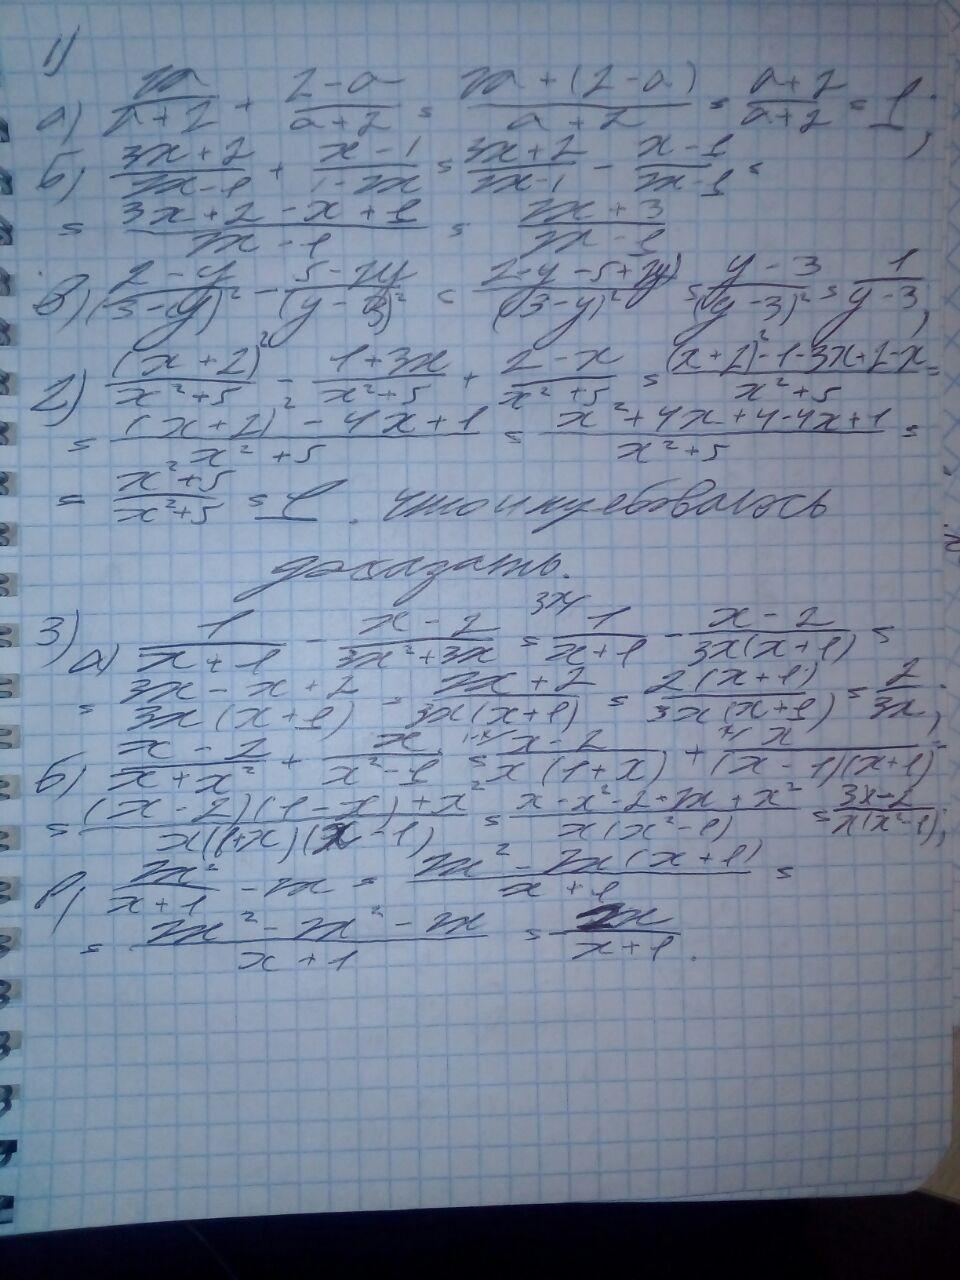 1)
а) 2a/(a+2) + (2-a)/(a+2) = (2a+(2-a))/(a+2) = (a+2)/(a+2) = 1;
б) (3x+2)/(2x-1) + (x-1)/(1-2x) = (3x+2)/(2x-1) - (x-1)/(2x-1) =
= (3x+2-x+1)/(2x-1) = (2x+3)/(2x-1)
в) (2-y)/(3-y)² - (5-2y)/(y-3)² = (2-y-5+2y)/(3-y)² = (y-3)/(y-3)² = 1/(y-3);
2) (x+2)²/(x²+5) - (1+3x)/(x²+5) + (2-x)/(x²+5) = ((x+2)²-1-3x+2-x)/(x²+5) =
= ((x+2)²-4x+1)/(x²+5) = (x²+4x+4-4x+1)/(x²+5) =
= (x²+5)/(x²+5) = 1. что и требовалось
доказать.
3) а) 1/(x+1) - (x-2)/(3x²+3x) = 3x/ 1/(x+1) - (x-2)/(3x(x+1)) =
= (3x-x+2)/(3x(x+1)) = (2x+2)/(3x(x+1)) = 2(x+1)/(3x(x+1)) = 2/(3x);
б) (x-2)/(x+x²) + x/(x²-1) = 1-x/ (x-2)/(x(1+x)) + x/ x/((x-1)(x+1)) =
= ((x-2)(1-x)+x²)/(x(1+x)(x-1)) = (x-x²-2+2x+x²)/(x(x²-1)) = (3x-2)/(x(x²-1));
в) 2x²/(x+1) - 2x = (2x²-2x(x+1))/(x+1) =
= (2x²-2x²-2x)/(x+1) = 2x/(x+1).